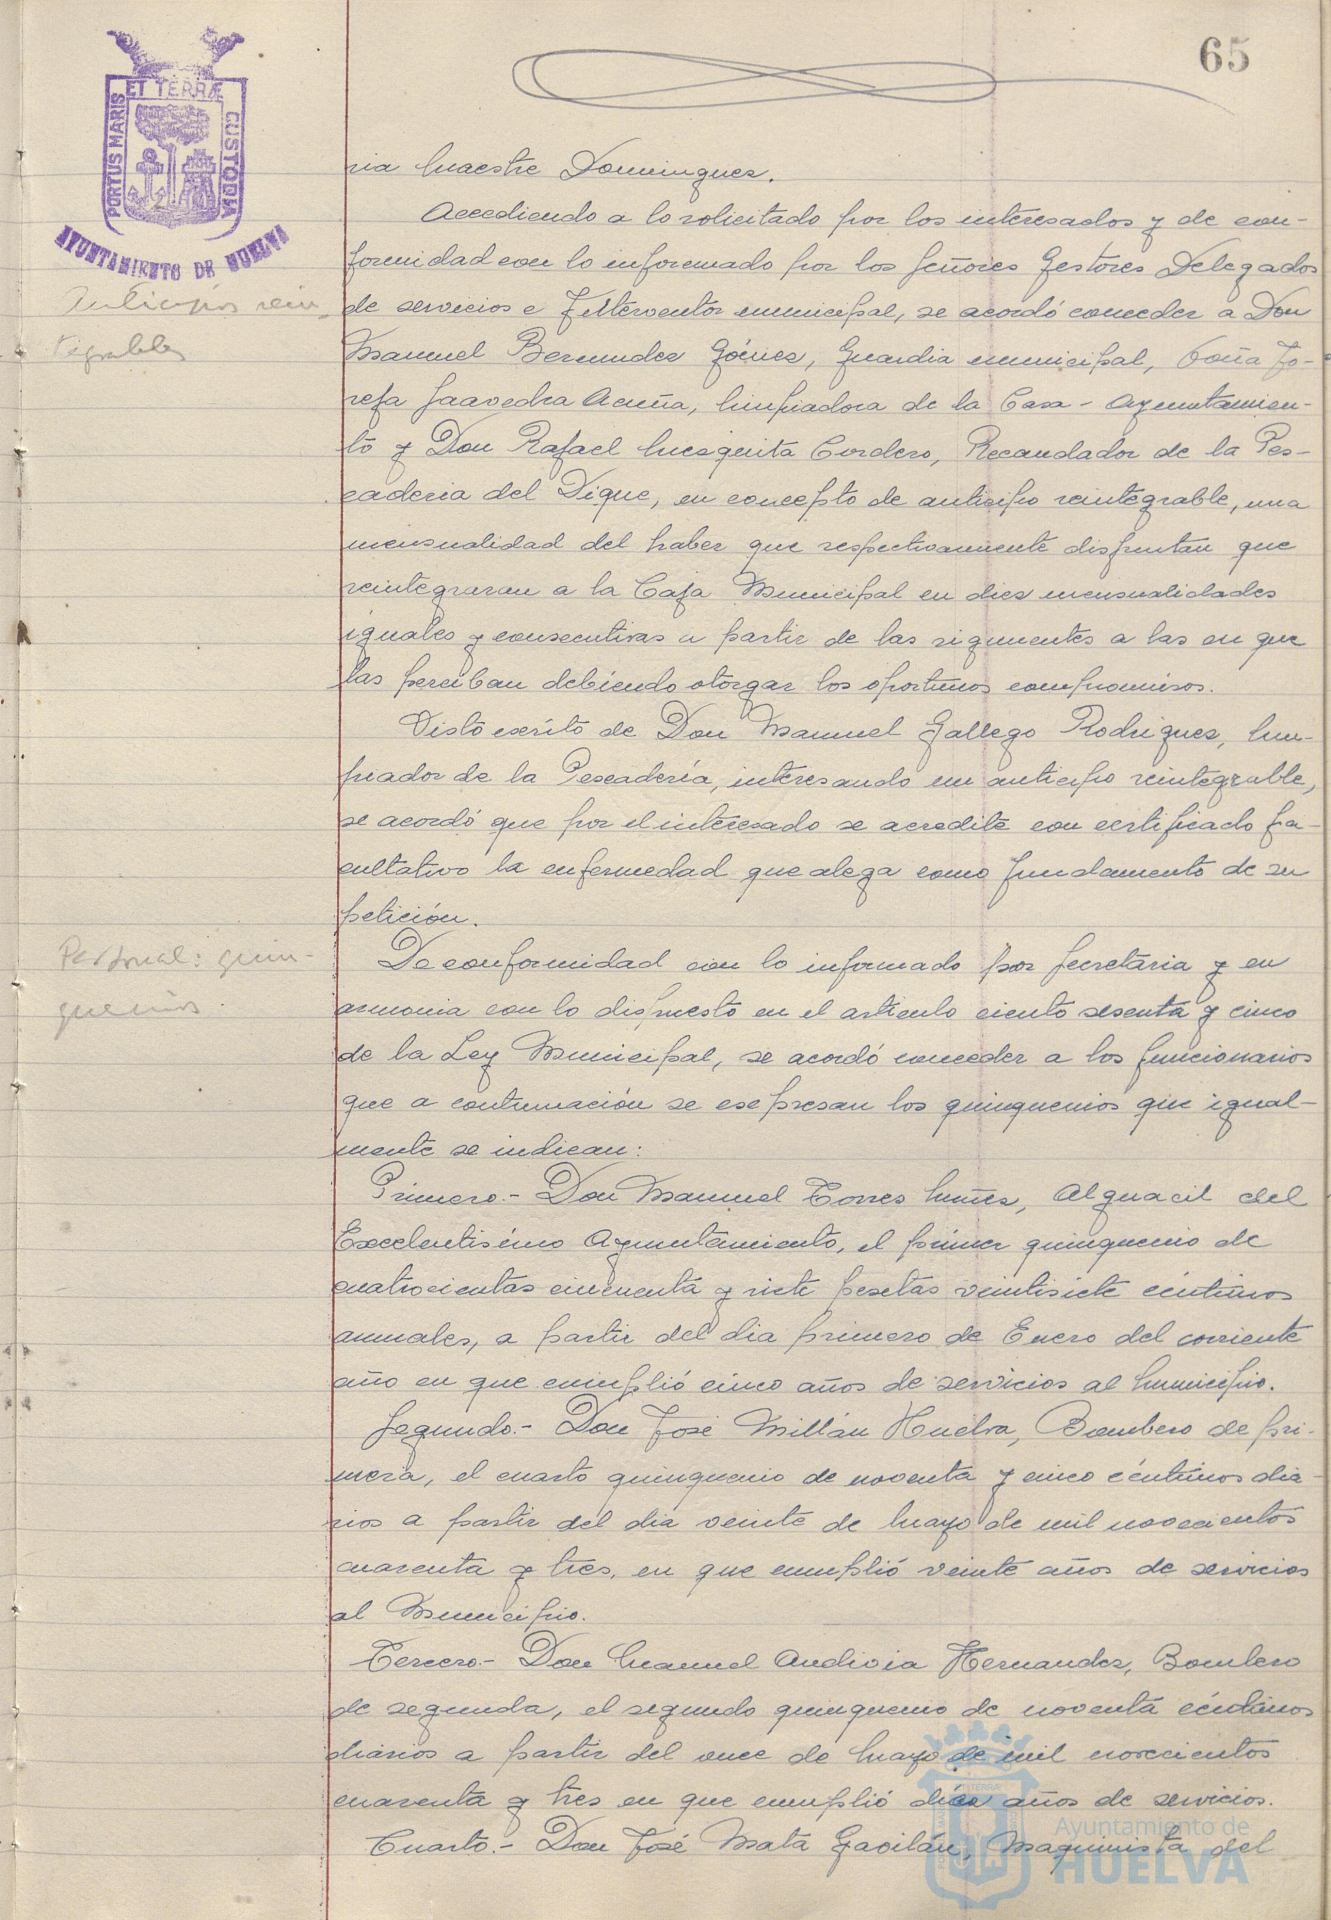 65
PORTUS MARIS ET TERRÆ CUSTODIA
AYUNTAMIENTO DE HUELVA
ria Maestre Dominguez.
Accediendo a lo solicitado por los interesados y de con-
formidad con lo informado por los Señores Gestores Delegados
Anticipos rein-
de servicios e Interventor municipal, se acordó conceder a Don
tegrables
Manuel Bermudez Gómez, Guardia municipal, Doña Jo-
sefa Saavedra Acuña, limpiadora de la Casa-Ayuntamien-
to y Don Rafael Mezquita Cordero, Recaudador de la Pes-
caderia del Dique, en concepto de anticipo reintegrable, una
mensualidad del haber que respectivamente disfrutan que
reintegraran a la Caja Municipal en diez mensualidades
iguales y consecutivas a partir de las siguientes a las en que
las perciban debiendo otorgar los oportunos compromisos.
Visto escrito de Don Manuel Gallego Rodriguez, lim-
piador de la Pescadería, interesando un anticipo reintegrable,
se acordó que por el interesado se acredite con certificado fa-
cultativo la enfermedad que alega como fundamento de su
petición.
Personal: quin-
quenios.
De conformidad con lo informado por Secretaria y en
armonia con lo dispuesto en el articulo ciento sesenta y cinco
de la Ley Municipal, se acordó conceder a los funcionarios
que a continuación se expresan los quinquenios que igual-
mente se indican:
Primero.- Don Manuel Torres Nuñez, Alguacil del
Excelentisimo Ayuntamiento, el primer quinquenio de
cuatrocientas cincuenta y siete pesetas veintisiete céntimos
anuales, a partir del dia primero de Enero del corriente
año en que cumplió cinco años de servicios al Municipio.
Segundo.- Don José Millán Huelva, Bombero de pri-
mera, el cuarto quinquenio de noventa y cinco céntimos dia-
rios a partir del dia veinte de Mayo de mil novecientos
cuarenta y tres, en que cumplió veinte años de servicios
al Municipio.
Tercero.- Don Manuel Andivia Hernandez, Bombero
de segunda, el segundo quinquenio de noventa céntimos
diarios a partir del once de Mayo de mil novecientos
cuarenta y tres en que cumplió diez años de servicios.
Cuarto.- Don José Mata Gavilán, Maquinista del
Ayuntamiento de
HUELVA